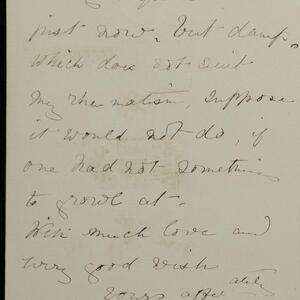 just now. but damp.
which does not suit
my rheumatism, suppose
it would not do, if
one had not something
to growl at.
With much love and
very good wish
Yours affectiately